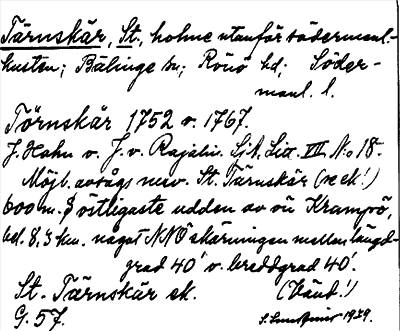 Tärnskär, St., holme utanför södermanl.-
kusten; Bälinge sn; Rönö hd; Söder-
manl. l.
Törnskär 1752 o. 1767.
J. Hahn o. J. v. Rajalin. Sjk. Lix. VII. No 18.
Möjl. avtågs nuv. St. Tärnskär (se ek!)
600 m. östligaste udden av ön Krampö,
bel. 8,3 km. något NNÖ skärningen mellan längd-
grad 40' o. breddgrad 40'.
St. Tärnskär ek. (Vänd!)
G. 57. 1929.